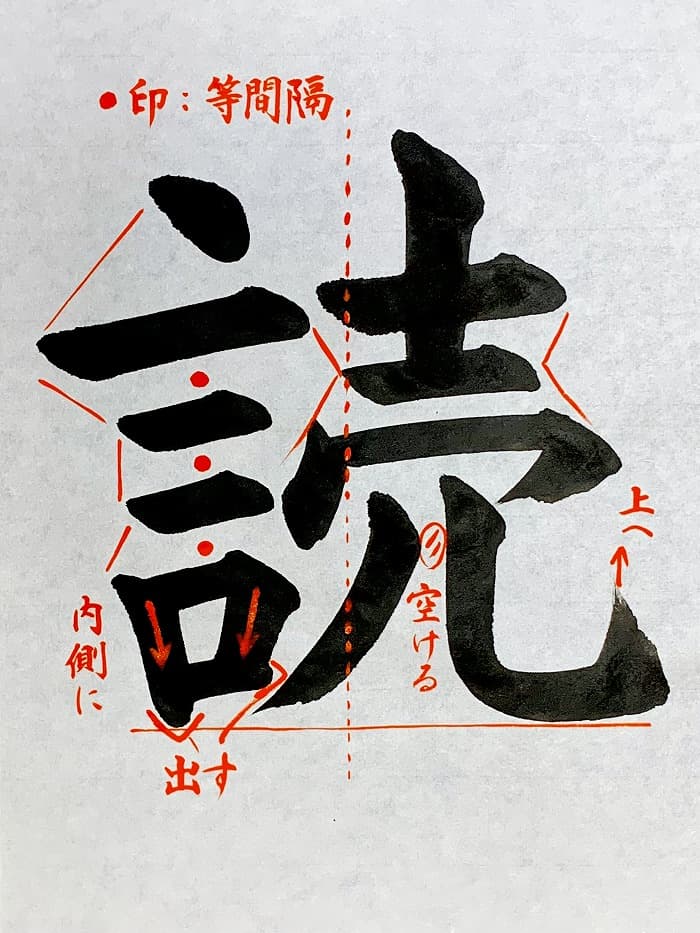 ●印:等間隔
読
上へ
空ける
内側に
出す